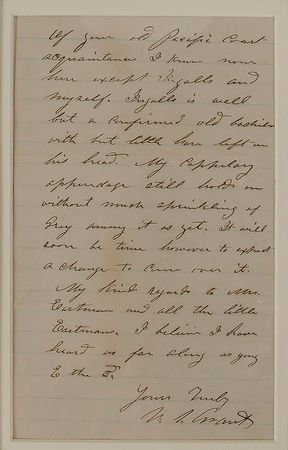 Of your old Pacific Coast
acquaintances I know none
here except Ingalls and
myself. Ingalls is well
but a confirmed old bachelor
with but little hare left on
his head. My Cappelary
appendage still holds on
without much sprinkling of
Grey among it as yet. It will
soon be time however to expect
a change to come over it.
My kind regards to Mrs.
Eastman and all the little
Eastmans. I believe I have
heard as far along as young
E the
Yours Truly
U. S. Grant